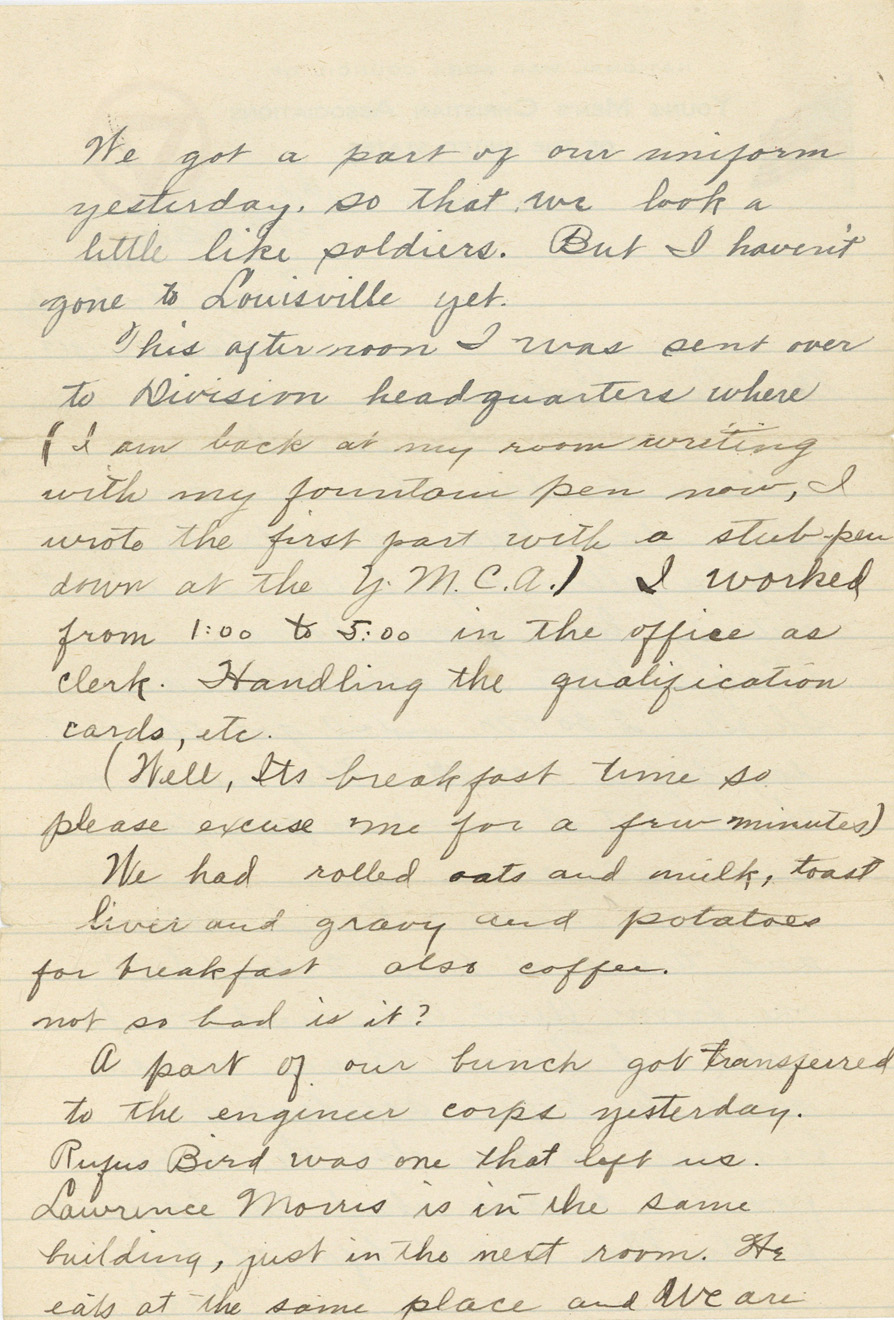 We got a part of our uniform
yesterday. so that we look a
little like soldiers. But I haven't
gone to Louisville yet.
This afternoon I was sent over
to Division headquarters where
(I am back at my room writing
with my fountain pen now, I
wrote the first part with a stub-pen
down at the Y.M.C.A.) I worked
from 1:00 to 5:00 in the office as
clerk. Handling the qualification
cards, etc.
(Well, Its breakfast time so
please excuse me for a few minutes)
We had rolled oats and milk, toast
liver and gravy and potatoes
for breakfast also coffee.
not so bad is it?
A part of our bunch got transferred
to the engineer corps yesterday.
Rufus Bird was one that left us.
Lawrence Morris is in the same
building, just in the next room. He
eats at the same place and We are